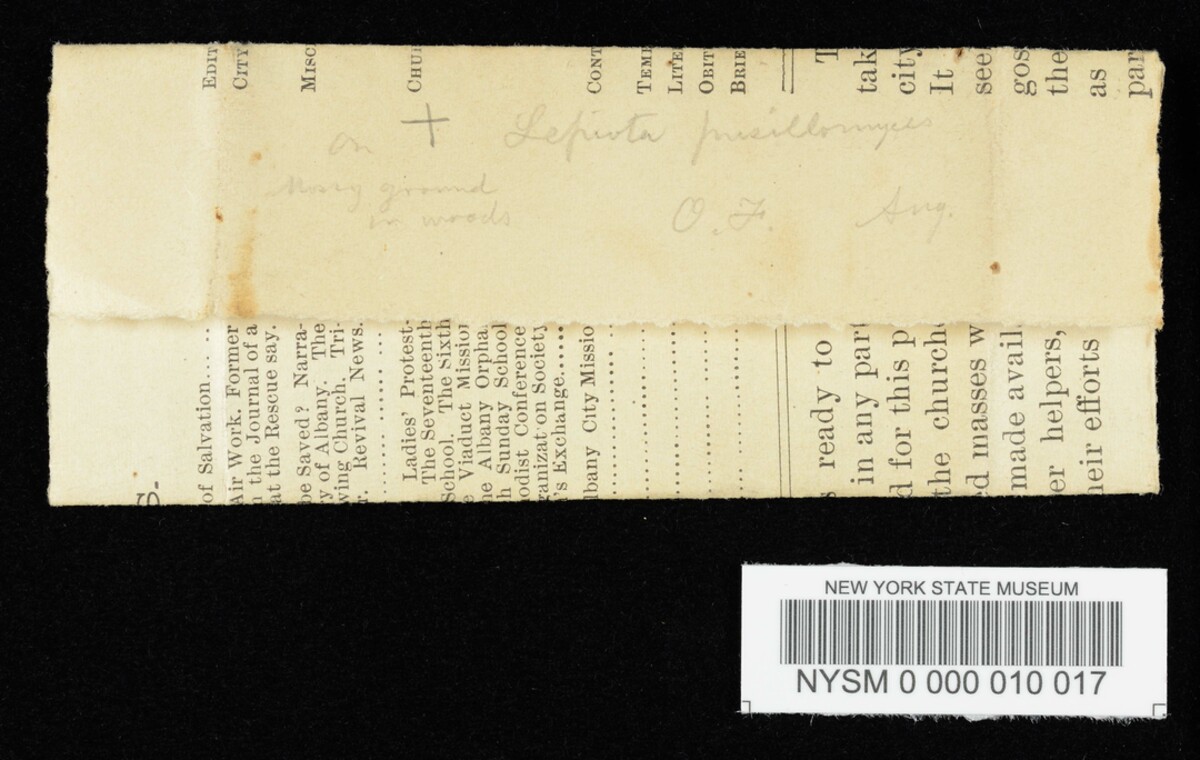 + Lepiota pusillomyces
on
Mossy ground
in woods
O. F. Aug.
EDIT
CITY
MISC
CHU
CONT
TEM
LITE
OBIT
BRIE
T
tak
city
It
see
gos
the
as
par
of Salvation....
Air Work. Former
the Journal of a
at the Rescue say.
be Saved? Narra-
y of Albany. The
wing Church. Tri-
r. Revival News.
Ladies' Protest-
The Seventeenth
School. The Sixth
e Viaduct Mission
he Albany Orpha
h Sunday School
odist Conference
ganizat on Society
's Exchange.....
lbany City Missio
s ready to
in any par
d for this p
the churche
ed masses w
made avail
er helpers,
heir efforts
NEW YORK STATE MUSEUM
NYSM 0 000 010 017